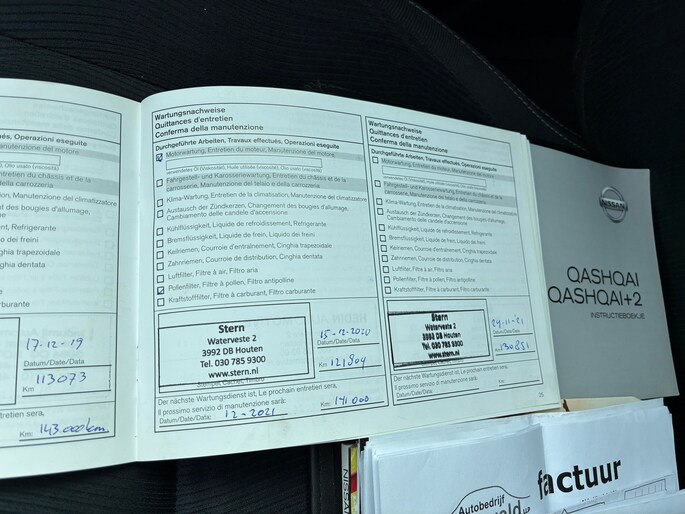 és, Operazioni eseguite
anutenzione del motore
Olio usato (viscosità)
entretien du châssis et de la
della carrozzeria
, Manutenzione del climatizzatore
t des bougies d'allumage,
Refrigerante
o dei freini
nghia trapezoidale
ghia dentata
arburante
17-12-19
Datum/Date/Data:
Km: 113073
tretien sera,
Km: 143.000km
Wartungsnachweise
Quittances d'entretien
Conferma della manutenzione
Durchgeführte Arbeiten, Travaux effectués, Operazioni eseguite
Motorwartung, Entretien du moteur, Manutenzione del motore
verwendetes Öl (Viskosität), Huile utilisée (viscosité), Olio usato (viscosità)
Fahrgestell- und Karosseriewartung, Entretien du châssis et de la
carrosserie, Manutenzione del telaio o della carrozzeria
Klima-Wartung, Entretien de la climatisation, Manutenzione del climatizzatore
Austausch der Zündkerzen, Changement des bougies d'allumage,
Cambiamento delle candele d'accensione
Kühlflüssigkeit, Liquide de refroidissement, Refrigerante
Bremsflüssigkeit, Liquide de frein, Liquido dei freini
Keilriemen, Courroie d'entraînement, Cinghia trapezoidale
Zahnriemen, Courroie de distribution, Cinghia dentata
Luftfilter, Filtre à air, Filtro aria
Pollenfilter, Filtre à pollen, Filtro antipolline
Kraftstofffilter, Filtre à carburant, Filtro carburante
Stern
Waterveste 2
3992 DB Houten
Tel. 030 785 9300
www.stern.nl
Stempel, Cachet, Timbro
15-12-2020
Datum/Date/Data:
Km: 121804
Der nächste Wartungsdienst ist, Le prochain entretien sera,
Il prossimo servizio di manutenzione sarà:
Datum/Date/Data: 12-2021 Km: 141000
Wartungsnachweise
Quittances d'entretien
Conferma della manutenzione
Durchgeführte Arbeiten, Travaux effectués, Operazioni eseguite
Motorwartung, Entretien du moteur, Manutenzione del motore
verwendetes Öl (Viskosität), Huile utilisée (viscosité), Olio usato (viscosità)
Fahrgestell- und Karosseriewartung, Entretien du châssis et de la
carrosserie, Manutenzione del telaio o della carrozzeria
Klima-Wartung, Entretien de la climatisation, Manutenzione del climatizzatore
Austausch der Zündkerzen, Changement des bougies d'allumage,
Cambiamento delle candele d'accensione
Kühlflüssigkeit, Liquide de refroidissement, Refrigerante
Bremsflüssigkeit, Liquide de frein, Liquido dei freini
Keilriemen, Courroie d'entraînement, Cinghia trapezoidale
Zahnriemen, Courroie de distribution, Cinghia dentata
Luftfilter, Filtre à air, Filtro aria
Pollenfilter, Filtre à pollen, Filtro antipolline
Kraftstofffilter, Filtre à carburant, Filtro carburante
Stern
Waterveste 2
3992 DB Houten
Tel. 030 785 9300
www.stern.nl
24-11-21
Datum/Date/Data:
Km: 130881
Der nächste Wartungsdienst ist, Le prochain entretien sera,
Il prossimo servizio di manutenzione sarà:
Datum/Date/Data: Km:
25
NISSAN
QASHQAI
QASHQAI+2
INSTRUCTIEBOEKJE
NISSAN
factuur
Autobedrijf